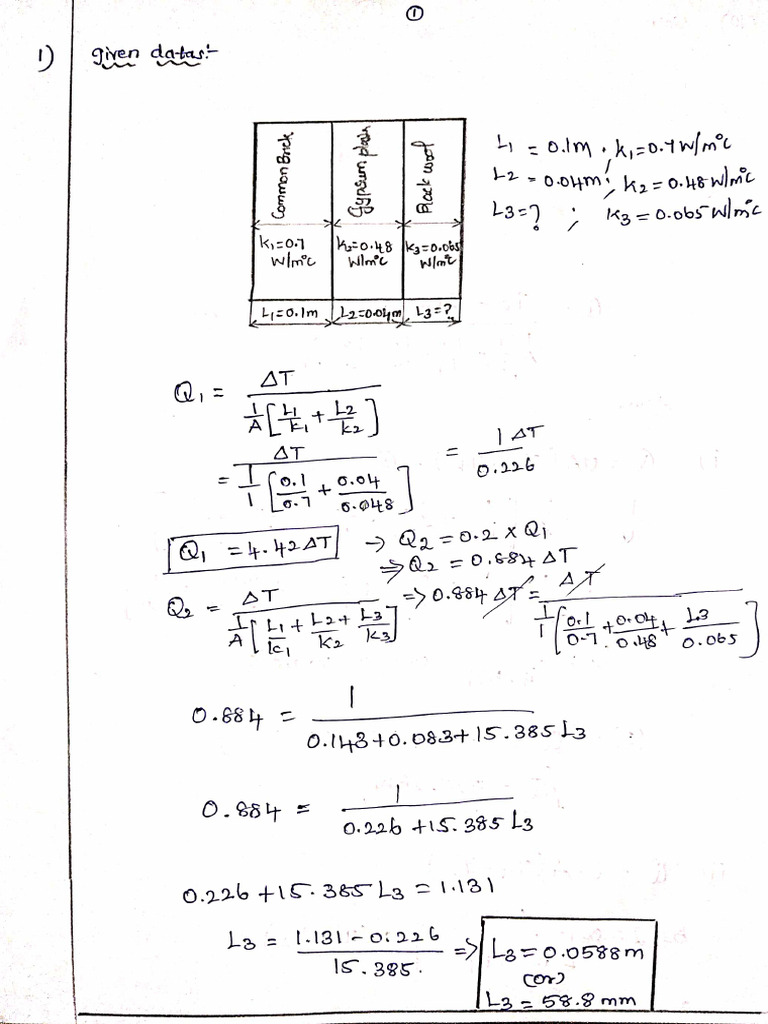 ①
1) given datas:-
Common Brick
Gypsum plain
Rack wool
L1 = 0.1m . K1=0.7 W/m°C
L2 = 0.04m ; K2 = 0.48 W/m°C
L3=? ; K3 = 0.065 W/m°C
K1=0.7 W/m°C
K2=0.48 W/m°C
K3=0.065 W/m°C
L1=0.1m L2=0.04m L3=?
Q1 = ΔT / 1/A [L1/K1 + L2/K2]
= ΔT / 1/1 [0.1/0.7 + 0.04/0.048] = 1 ΔT / 0.226
Q1 = 4.42 ΔT → Q2 = 0.2 x Q1
⇒ Q2 = 0.884 ΔT
Q2 = ΔT / 1/A [L1/K1 + L2/K2 + L3/K3] => 0.884 ΔT = ΔT / 1/1 [0.1/0.7 + 0.04/0.48 + L3/0.065]
0.884 = 1 / 0.143+0.083+15.385 L3
0.884 = 1 / 0.226 +15.385 L3
0.226 +15.385 L3 = 1.131
L3 = 1.131 - 0.226 / 15.385. => L3 = 0.0588 m
(or)
L3 = 58.8 mm